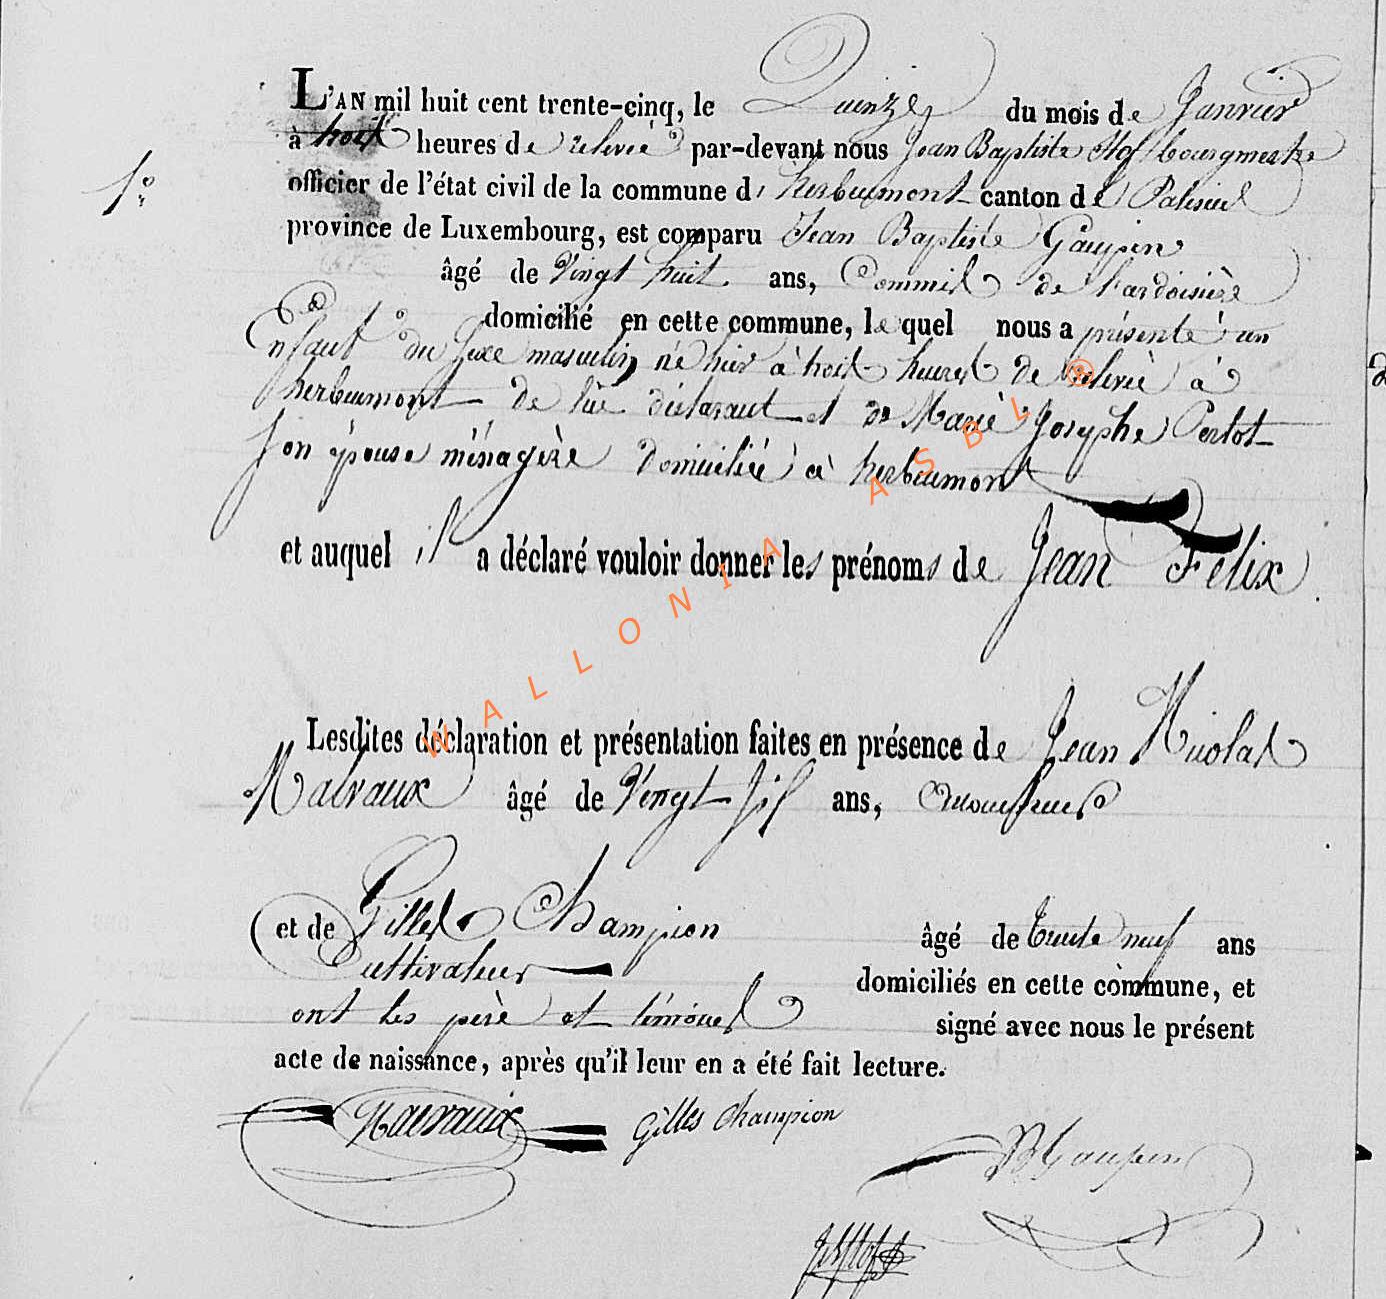 L'AN mil huit cent trente-cinq, le Quinze du mois de Janvier
à huit heures de relevée par-devant nous Jean Baptiste Hof bourgmestre
1º
officier de l'état civil de la commune d' herbeumont canton de Paliseul
province de Luxembourg, est comparu Jean Baptiste Gaupin
âgé de Vingt huit ans, Commis de l'ardoisière
domicilié en cette commune, lequel nous a présenté un
Enfant du sexe masculin, né hier à huit heures de relevée à
herbeumont de lui déclarant et de Marie Josephe Perlot
son épouse ménagère domiciliée à herbeumont
et auquel il a déclaré vouloir donner les prénoms de Jean Félix
Lesdites déclaration et présentation faites en présence de Jean Nicolas
Malvaux âgé de Vingt six ans,
et de Gilles Champion âgé de trente neuf ans
Cultivateur
domiciliés en cette commune, et
ont les père et témoins signé avec nous le présent
acte de naissance, après qu'il leur en a été fait lecture.
Malvaux Gilles Champion
JBGaupin
JBHof
WALLONIA ASBL ®